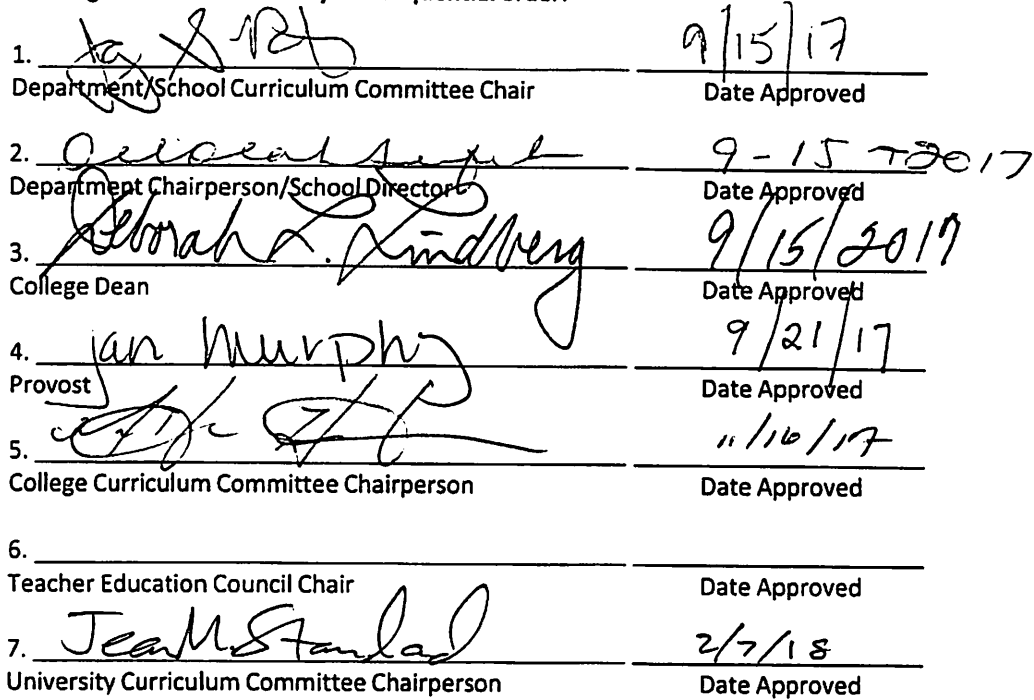 1. 9/15/17
Department/School Curriculum Committee Chair Date Approved
2. 9-15-2017
Department Chairperson/School Director Date Approved
3. Deborah L. Lindberg 9/15/2017
College Dean Date Approved
4. Jan Murphy 9/21/17
Provost Date Approved
5. 11/16/17
College Curriculum Committee Chairperson Date Approved
6.
Teacher Education Council Chair Date Approved
7. Jean M. Standard 2/7/18
University Curriculum Committee Chairperson Date Approved